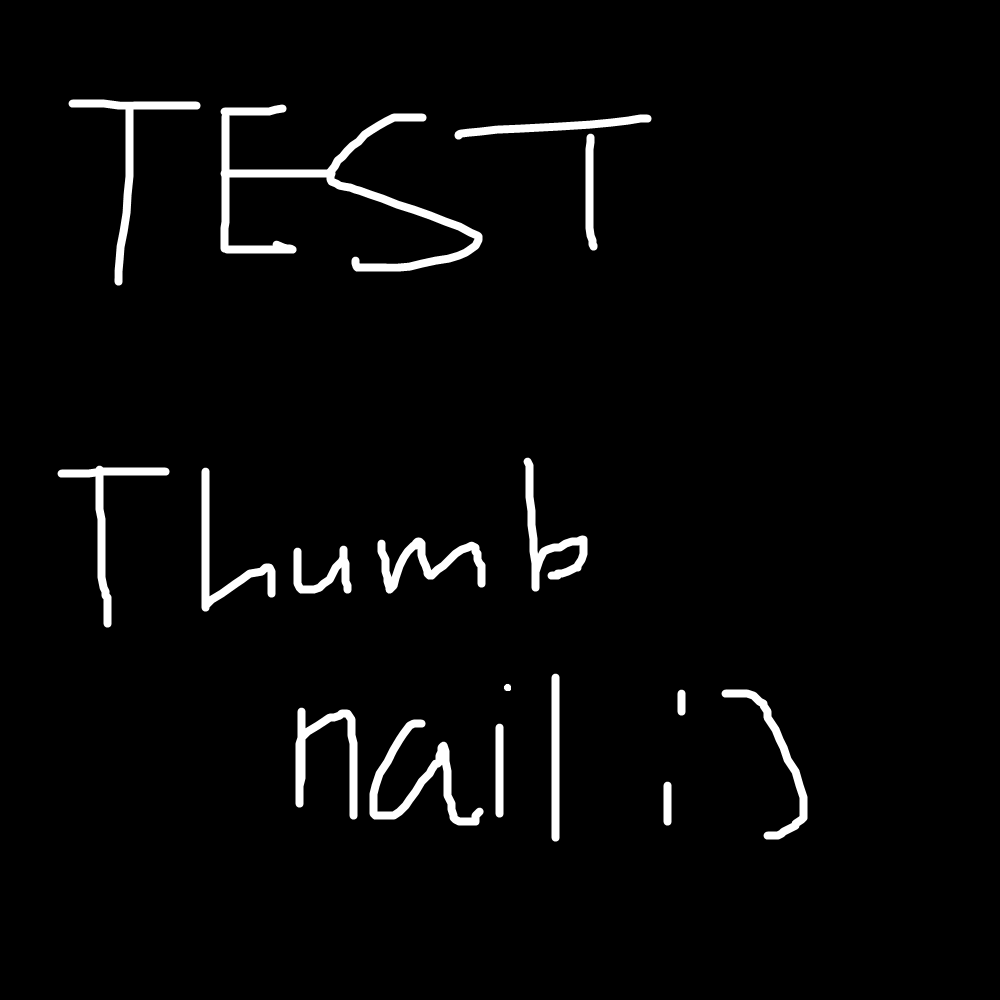 TEST
Thumb
nail :)